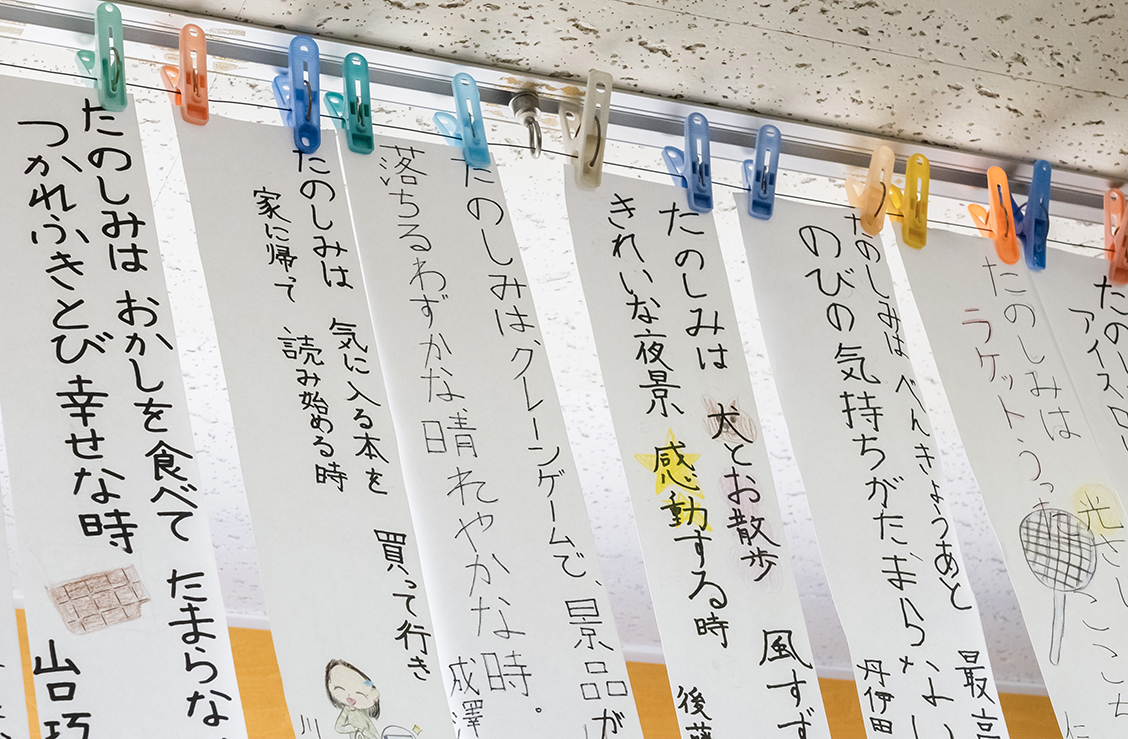 たのし
アイス
たのしみは 光さしここち
ラケットうっ
たのしみは べんきょうあと 最高
のびの気持ちがたまらない
丹伊田
たのしみは 犬とお散歩 風すず
きれいな夜景 感動する時
後藤
たのしみは、クレーンゲームで、景品が
落ちるわずかな晴れやかな時。
成澤
たのしみは 気に入る本を 買って行き
家に帰って 読み始める時
川
たのしみは おかしを食べて たまらな
つかれふきとび 幸せな時
山口巧